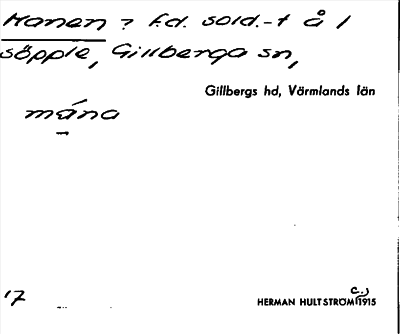 Manen ? f.d. sold.-t å l
söpple, Gillberga sn,
Gillbergs hd, Värmlands län
måna
17
HERMAN HULTSTRÖM c.) 1915